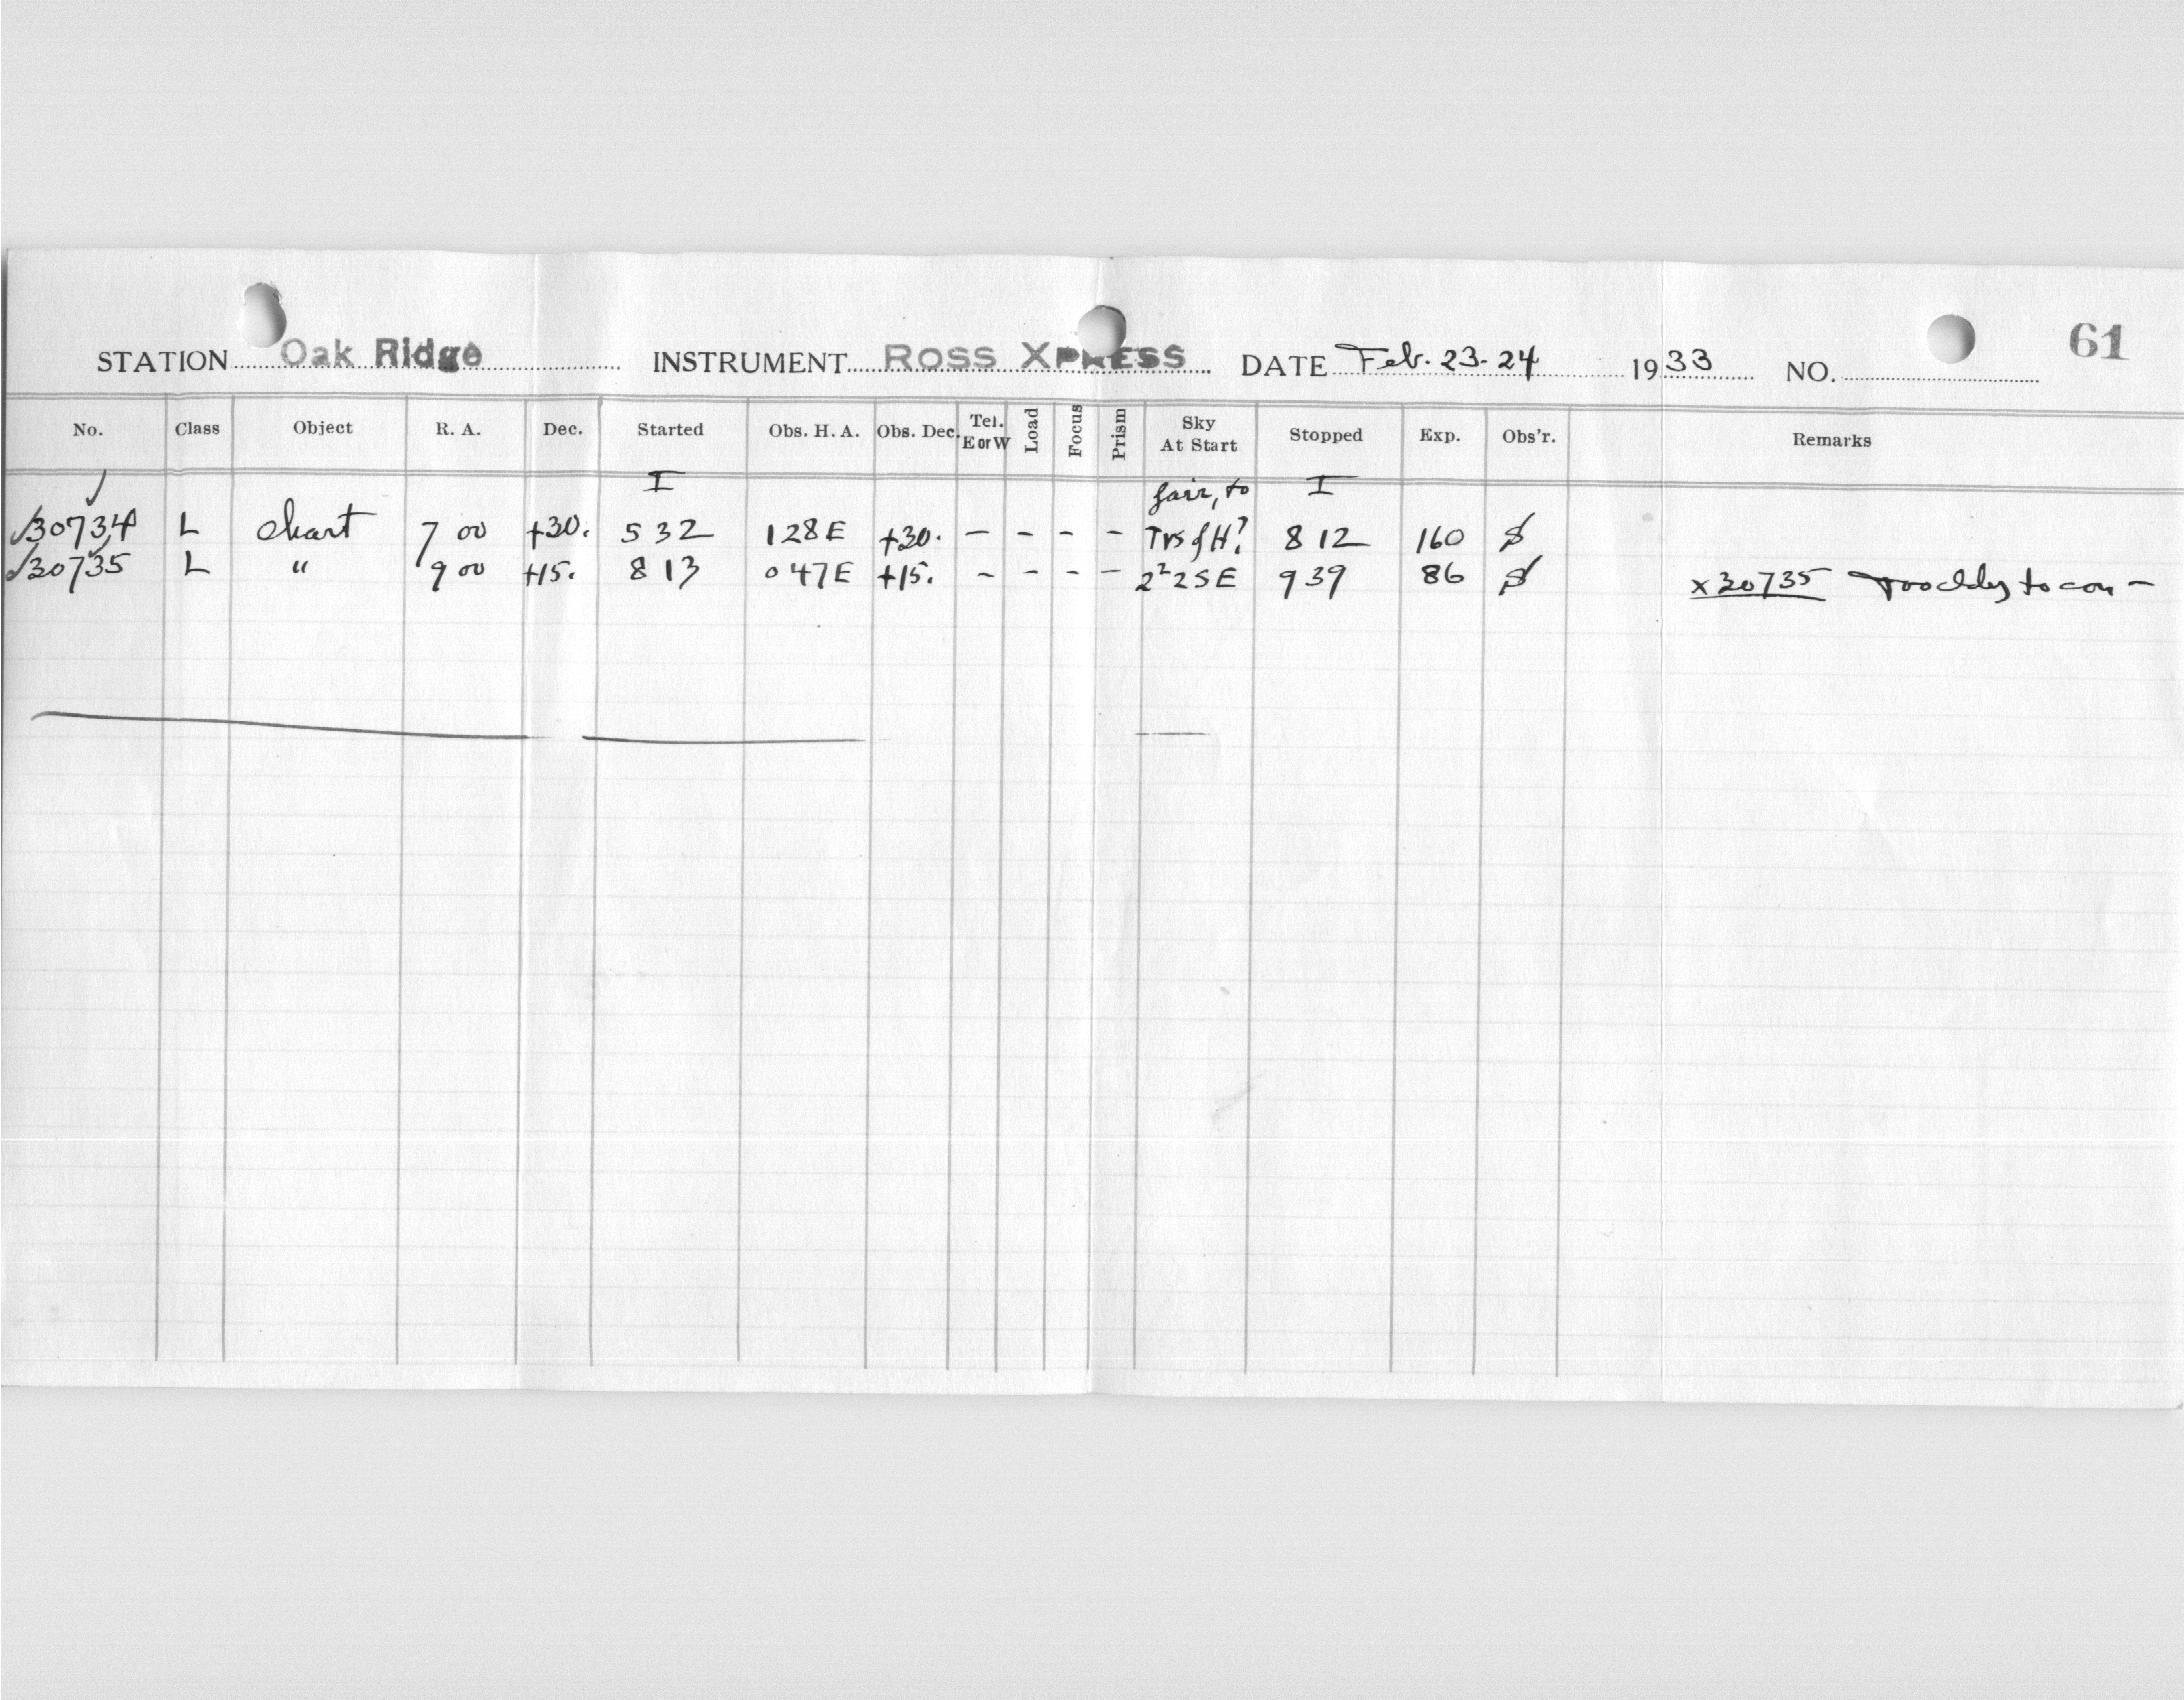 61
STATION Oak Ridge INSTRUMENT ROSS XPRESS DATE Feb. 23-24 1933 NO.
No. Class Object R. A. Dec. Started Obs. H. A. Obs. Dec. Tel. E or W Load Focus Prism Sky At Start Stopped Exp. Obs'r. Remarks
I fair, to I
30734 L chart 7 00 +30. 5 32 1 28 E +30. - - - - H? 8 12 160
30735 L " 9 00 +15. 8 13 0 47 E +15. - - - - 2² 2 S E 9 39 86 x 30735 to con -